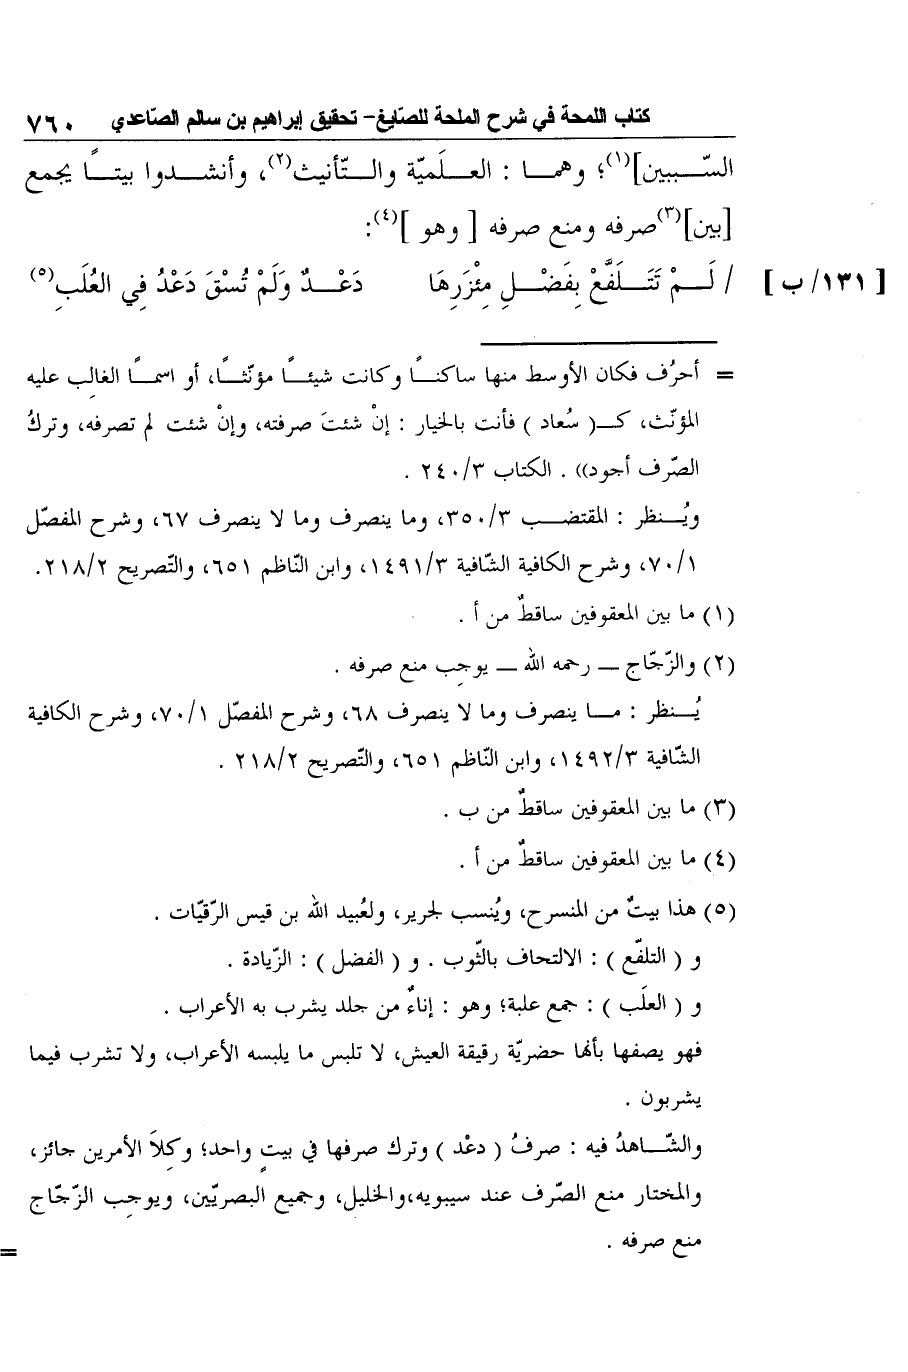 كتاب اللمحة في شرح الملحة للصّايغ- تحقيق إبراهيم بن سالم الصّاعدي ٧٦٠
السّببين](١)؛ وهما : العلَميّة والتّأنيث(٢)، وأنشدوا بيتًا يجمع
[بين](٣)صرفه ومنع صرفه [ وهو ](٤):
[ ١٣١/ ب ] / لَمْ تَتَلَفَّعْ بِفَضْلِ مِئْزَرِهَا دَعْدٌ وَلَمْ تُسْقَ دَعْدُ فِي العُلَبِ(٥)
= أحرُف فكان الأوسط منها ساكنًا وكانت شيئًا مؤنّثًا، أو اسمًا الغالب عليه
المؤنّث، كـ( سُعاد ) فأنت بالخيار : إنْ شئتَ صرفته، وإنْ شئت لم تصرفه، وتركُ
الصّرف أجود)) . الكتاب ٢٤٠/٣ .
ويُنظر : المقتضب ٣٥٠/٣، وما ينصرف وما لا ينصرف ٦٧، وشرح المفصّل
٧٠/١، وشرح الكافية الشّافية ١٤٩١/٣، وابن النّاظم ٦٥١، والتّصريح ٢١٨/٢.
(١) ما بين المعقوفين ساقطٌ من أ .
(٢) والزّجّاج ـ رحمه الله ـ يوجِب منع صرفه .
يُنظر : ما ينصرف وما لا ينصرف ٦٨، وشرح المفصّل ٧٠/١، وشرح الكافية
الشّافية ١٤٩٢/٣، وابن النّاظم ٦٥١، والتّصريح ٢١٨/٢ .
(٣) ما بين المعقوفين ساقطٌ من ب .
(٤) ما بين المعقوفين ساقطٌ من أ .
(٥) هذا بيتٌ من المنسرح، ويُنسب لجرير، ولعُبيد الله بن قيس الرّقيّات .
و ( التلفّع ) : الالتحاف بالثّوب . و ( الفضل ) : الزّيادة .
و ( العلَب ) : جمع علبة؛ وهو : إناءٌ من جلد يشرب به الأعراب .
فهو يصفها بأنها حضريّة رقيقة العيش، لا تلبس ما يلبسه الأعراب، ولا تشرب فيما
يشربون .
والشّاهدُ فيه : صرفُ ( دعْد ) وترك صرفها في بيتٍ واحد؛ وكِلاَ الأمرين جائز،
والمختار منع الصّرف عند سيبويه،والخليل، وجميع البصريّين، ويوجِب الزّجّاج
منع صرفه .
=